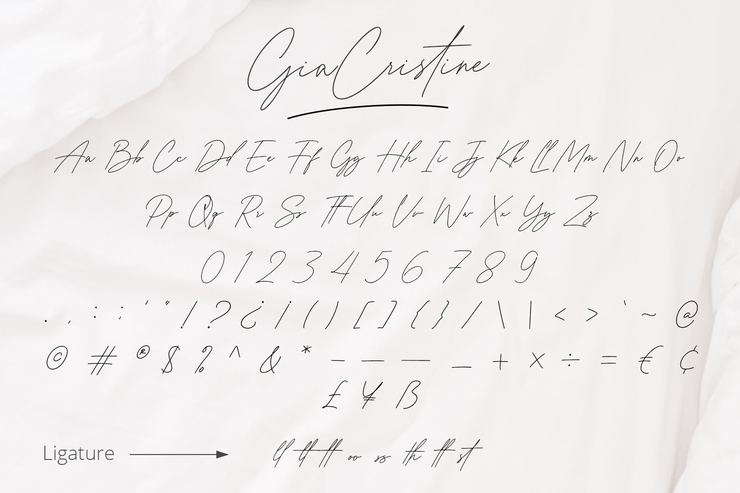 GiaCristine
Aa Bb Cc Dd Ee Ff Gg Hh Ii Jj Kk Ll Mm Nn Oo
Pp Qq Rr Ss Tt Uu Vv Ww Xx Yy Zz
0 1 2 3 4 5 6 7 8 9
. , : ; ' " ! ? ¿ ¡ ( ) [ ] { } / \ | < > ` ~ @
© # ® $ % ^ & * - – — _ + × ÷ = € ¢
£ ¥ ß
Ligature oo ss th tt st